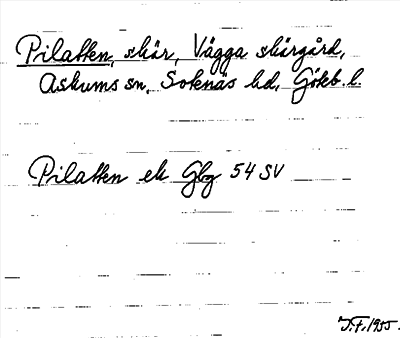 Pilatten, skär, Vägga skärgård,
Askums sn, Sotenäs hd, Göteb. l.
Pilatten ek Gbg 54 SV
J.F. 1955.